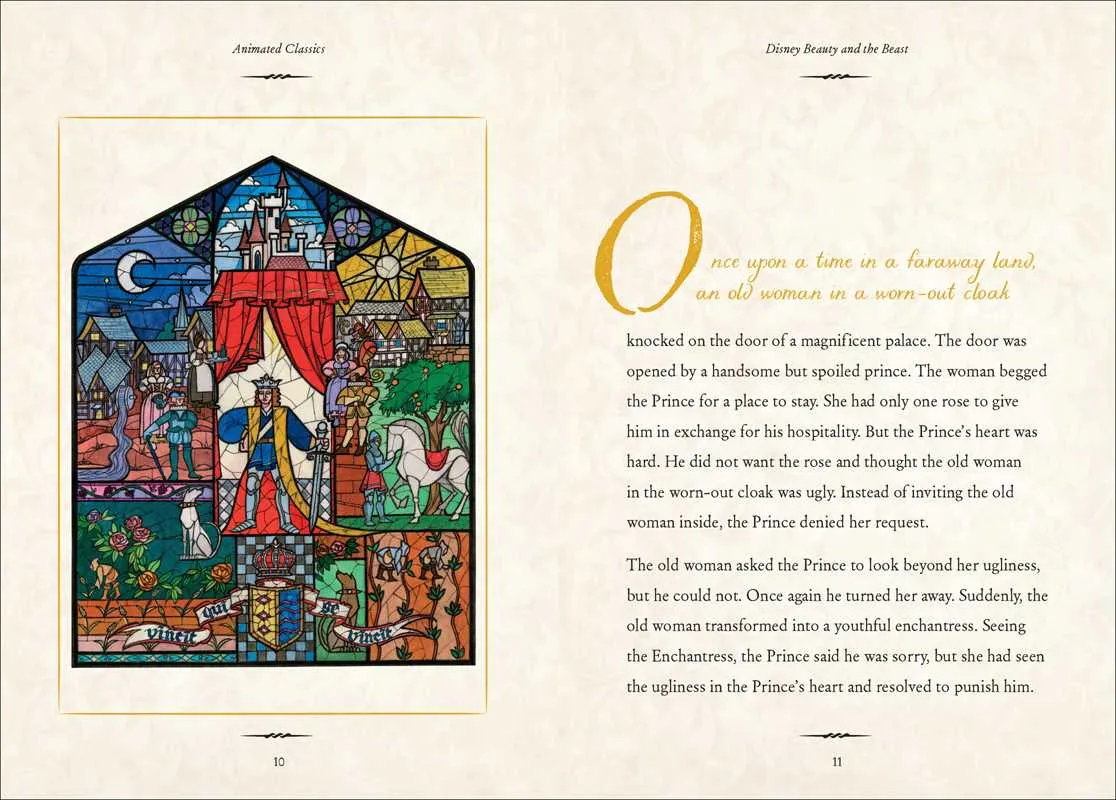 Animated Classics
qui se
vincit vincit
10
Disney Beauty and the Beast
Once upon a time in a faraway land,
an old woman in a worn-out cloak
knocked on the door of a magnificent palace. The door was
opened by a handsome but spoiled prince. The woman begged
the Prince for a place to stay. She had only one rose to give
him in exchange for his hospitality. But the Prince’s heart was
hard. He did not want the rose and thought the old woman
in the worn-out cloak was ugly. Instead of inviting the old
woman inside, the Prince denied her request.
The old woman asked the Prince to look beyond her ugliness,
but he could not. Once again he turned her away. Suddenly, the
old woman transformed into a youthful enchantress. Seeing
the Enchantress, the Prince said he was sorry, but she had seen
the ugliness in the Prince’s heart and resolved to punish him.
11